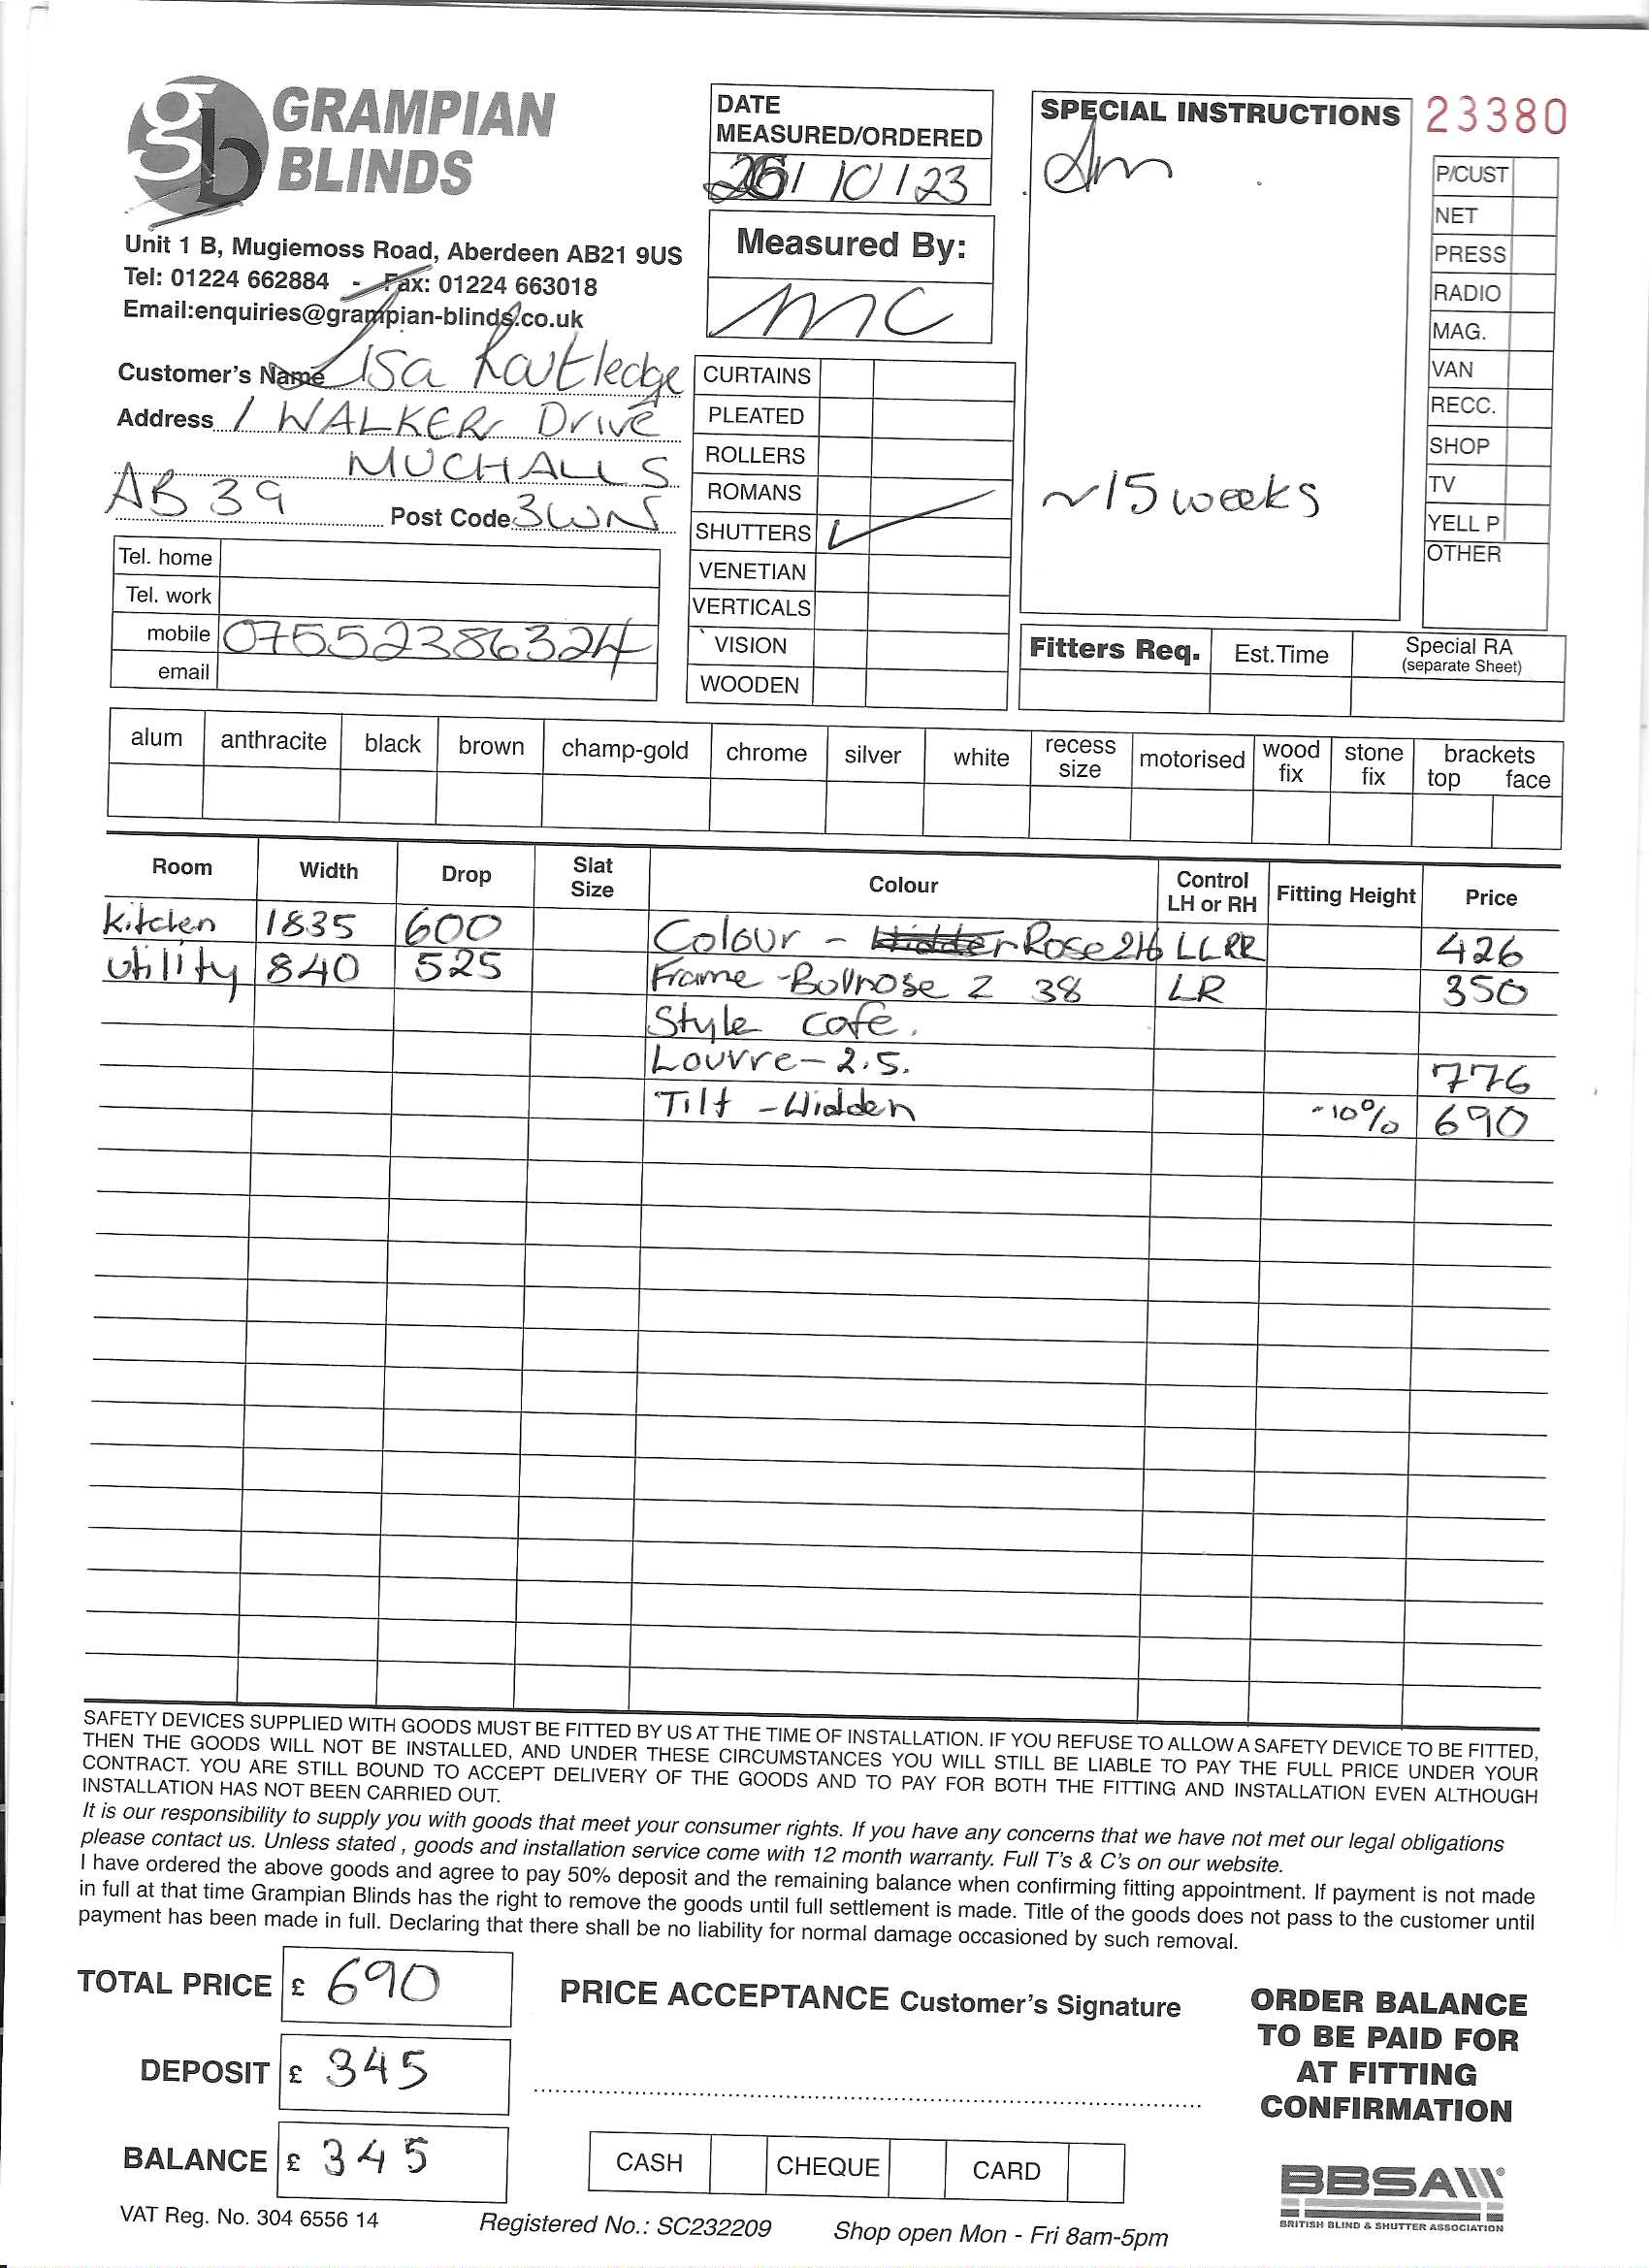 gb GRAMPIAN BLINDS
Unit 1 B, Mugiemoss Road, Aberdeen AB21 9US
Tel: 01224 662884 - Fax: 01224 663018
Email:enquiries@grampian-blinds.co.uk
DATE MEASURED/ORDERED
/ 10 / 23
Measured By:
MC
SPECIAL INSTRUCTIONS
~15 weeks
23380
P/CUST
NET
PRESS
RADIO
MAG.
VAN
RECC.
SHOP
TV
YELL P
OTHER
Customer's Name Lisa Routledge
Address 1 WALKER Drive
MUCHALLS
AB39 Post Code 3WN
Tel. home
Tel. work
mobile 07552386324
email
CURTAINS
PLEATED
ROLLERS
ROMANS
SHUTTERS ✓
VENETIAN
VERTICALS
VISION
WOODEN
Fitters Req. Est.Time Special RA (separate Sheet)
alum anthracite black brown champ-gold chrome silver white recess size motorised wood fix stone fix brackets top face
Room Width Drop Slat Size Colour Control LH or RH Fitting Height Price
Kitchen 1835 600 Colour - Rose 216 LLRR 426
Utility 840 525 Frame - Bullnose Z 38 LR 350
Style cafe.
Louvre - 2.5. 776
Tilt - Hidden -10% 690
SAFETY DEVICES SUPPLIED WITH GOODS MUST BE FITTED BY US AT THE TIME OF INSTALLATION. IF YOU REFUSE TO ALLOW A SAFETY DEVICE TO BE FITTED,
THEN THE GOODS WILL NOT BE INSTALLED, AND UNDER THESE CIRCUMSTANCES YOU WILL STILL BE LIABLE TO PAY THE FULL PRICE UNDER YOUR
CONTRACT. YOU ARE STILL BOUND TO ACCEPT DELIVERY OF THE GOODS AND TO PAY FOR BOTH THE FITTING AND INSTALLATION EVEN ALTHOUGH
INSTALLATION HAS NOT BEEN CARRIED OUT.
It is our responsibility to supply you with goods that meet your consumer rights. If you have any concerns that we have not met our legal obligations
please contact us. Unless stated , goods and installation service come with 12 month warranty. Full T's & C's on our website.
I have ordered the above goods and agree to pay 50% deposit and the remaining balance when confirming fitting appointment. If payment is not made
in full at that time Grampian Blinds has the right to remove the goods until full settlement is made. Title of the goods does not pass to the customer until
payment has been made in full. Declaring that there shall be no liability for normal damage occasioned by such removal.
TOTAL PRICE £ 690
DEPOSIT £ 345
BALANCE £ 345
PRICE ACCEPTANCE Customer's Signature
CASH CHEQUE CARD
ORDER BALANCE
TO BE PAID FOR
AT FITTING
CONFIRMATION
BBSA
BRITISH BLIND & SHUTTER ASSOCIATION
VAT Reg. No. 304 6556 14 Registered No.: SC232209 Shop open Mon - Fri 8am-5pm